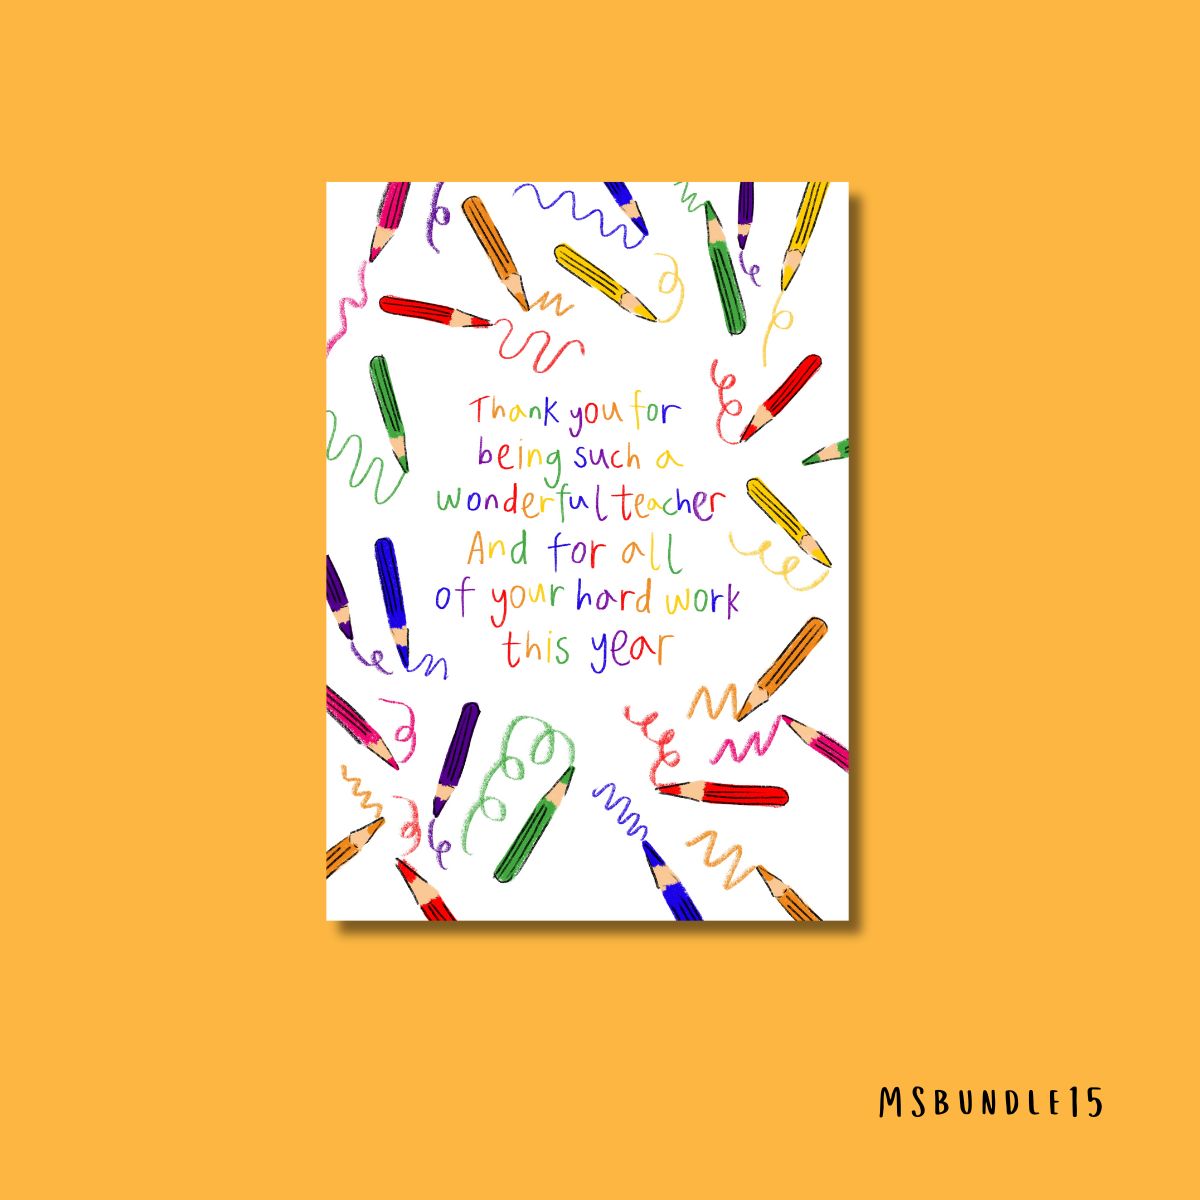 Thank you for
being such a
wonderful teacher
And for all
of your hard work
this year
MSBUNDLE15